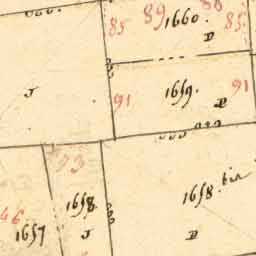 89
88
85
1660.
85
P
J
1659.
91
91
P
93
1658 bis
1658
46
1657
J
P